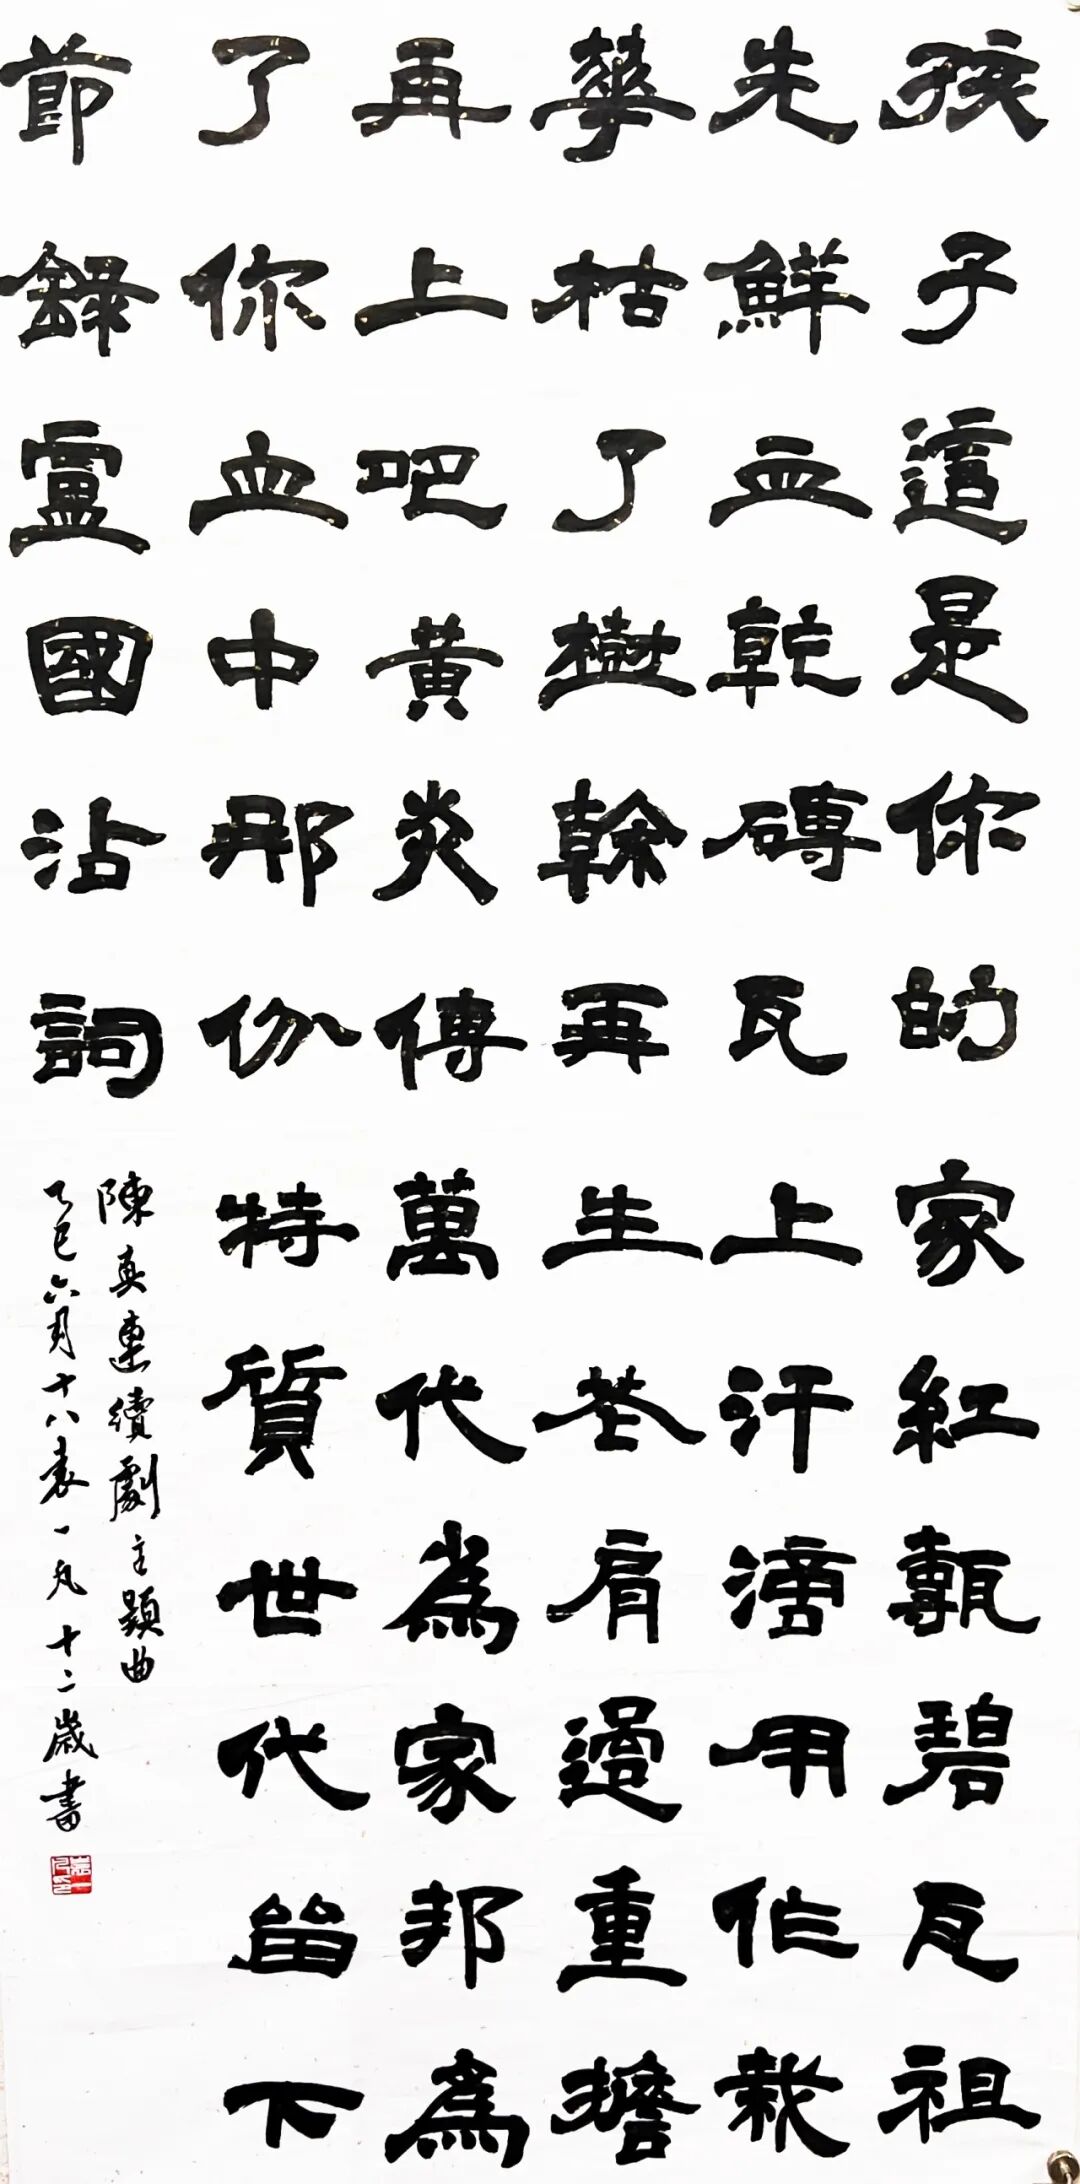 孩子這是你的家紅甎碧瓦祖
先鮮血乾磚瓦上汗滴用作栽
華枯了樹榦再生花肩過重擔
再上吧黃炎傳萬代為家邦為
了你血中那份特質世代留下
節錄盧國沾詞
陳真連續劇主題曲
乙巳六月十八袁一凡十二歲書